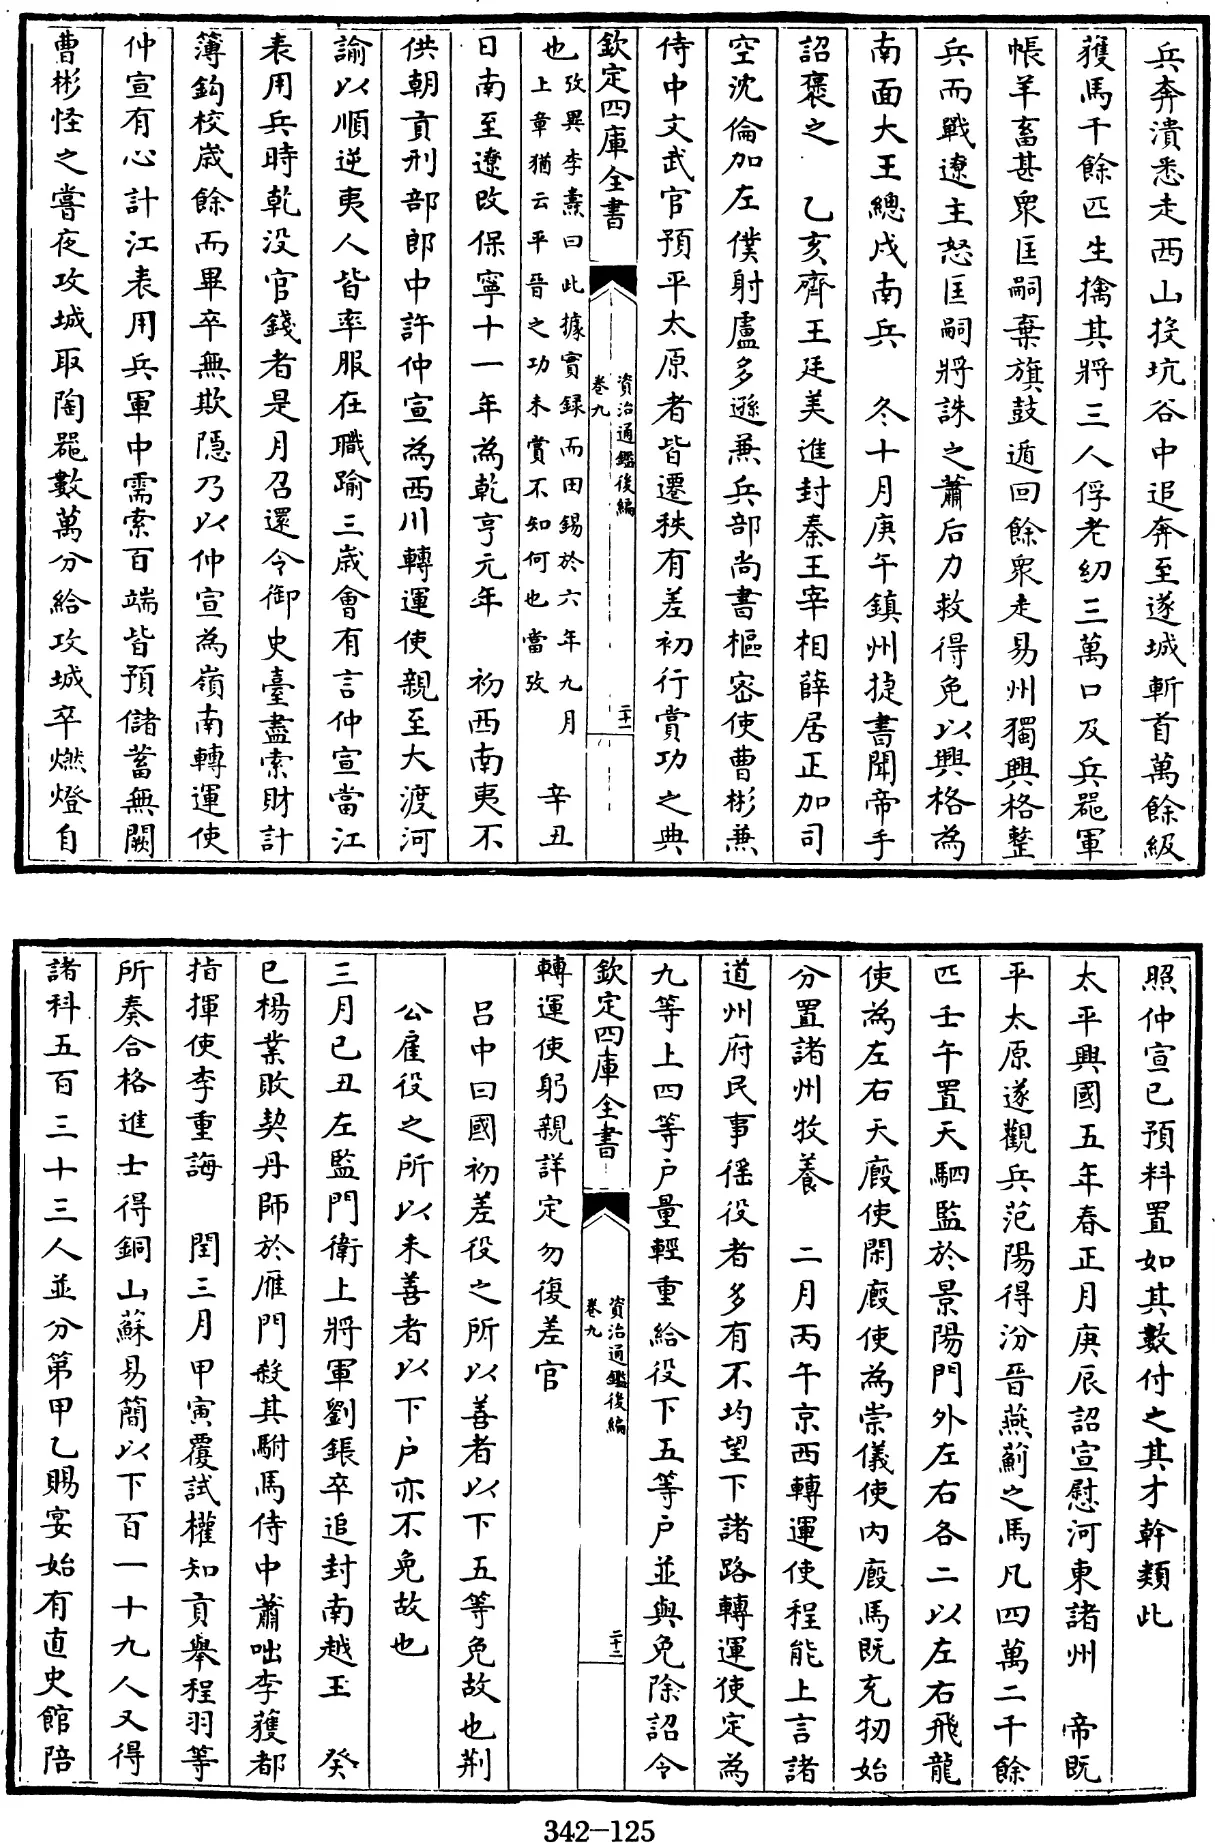 兵奔潰悉走西山投坑谷中追奔至遂城斬首萬餘級
獲馬千餘匹生擒其將三人俘老幼三萬口及兵噐軍
帳羊畜甚衆匡嗣棄旗鼓遁回餘衆走易州獨興格整
兵而戰遼主怒匡嗣將誅之蕭后力救得免以興格為
南面大王總戍南兵　冬十月庚午鎮州捷書聞帝手
詔褒之　乙亥齊王廷美進封秦王宰相薛居正加司
空沈倫加左僕射盧多遜兼兵部尚書樞宻使曹彬兼
侍中文武官預平太原者皆遷秩有差初行賞功之典
欽定四庫全書
資治通鑑後編
卷九
二十一
也
攷異李燾曰此據實録而田錫於六年九月
上章猶云平晉之功未賞不知何也當攷
辛丑
日南至遼改保寧十一年為乾亨元年　初西南夷不
供朝貢刑部郎中許仲宣為西川轉運使親至大渡河
諭以順逆夷人皆率服在職踰三歳會有言仲宣當江
表用兵時乾没官錢者是月召還令御史臺盡索財計
簿鈎校歳餘而畢卒無欺隠乃以仲宣為嶺南轉運使
仲宣有心計江表用兵軍中需索百端皆預儲蓄無闕
曹彬怪之嘗夜攻城取陶噐數萬分給攻城卒燃燈自
照仲宣已預料置如其數付之其才幹類此
太平興國五年春正月庚辰詔宣慰河東諸州　帝既
平太原遂觀兵范陽得汾晉燕薊之馬凡四萬二千餘
匹壬午置天駟監於景陽門外左右各二以左右飛龍
使為左右天廐使閑廐使為崇儀使内廐馬既充牣始
分置諸州牧養　二月丙午京西轉運使程能上言諸
道州府民事徭役者多有不均望下諸路轉運使定為
九等上四等户量輕重給役下五等户並與免除詔令
欽定四庫全書
資治通鑑後編
卷九
二十二
轉運使躬親詳定勿復差官
吕中曰國初差役之所以善者以下五等免故也荆
公雇役之所以未善者以下户亦不免故也
三月己丑左監門衛上將軍劉鋹卒追封南越王　癸
巳楊業敗契丹師於雁門殺其駙馬侍中蕭咄李獲都
指揮使李重誨　閏三月甲寅覆試權知貢舉程羽等
所奏合格進士得銅山蘇易簡以下百一十九人又得
諸科五百三十三人並分第甲乙賜宴始有直史館陪
342-125